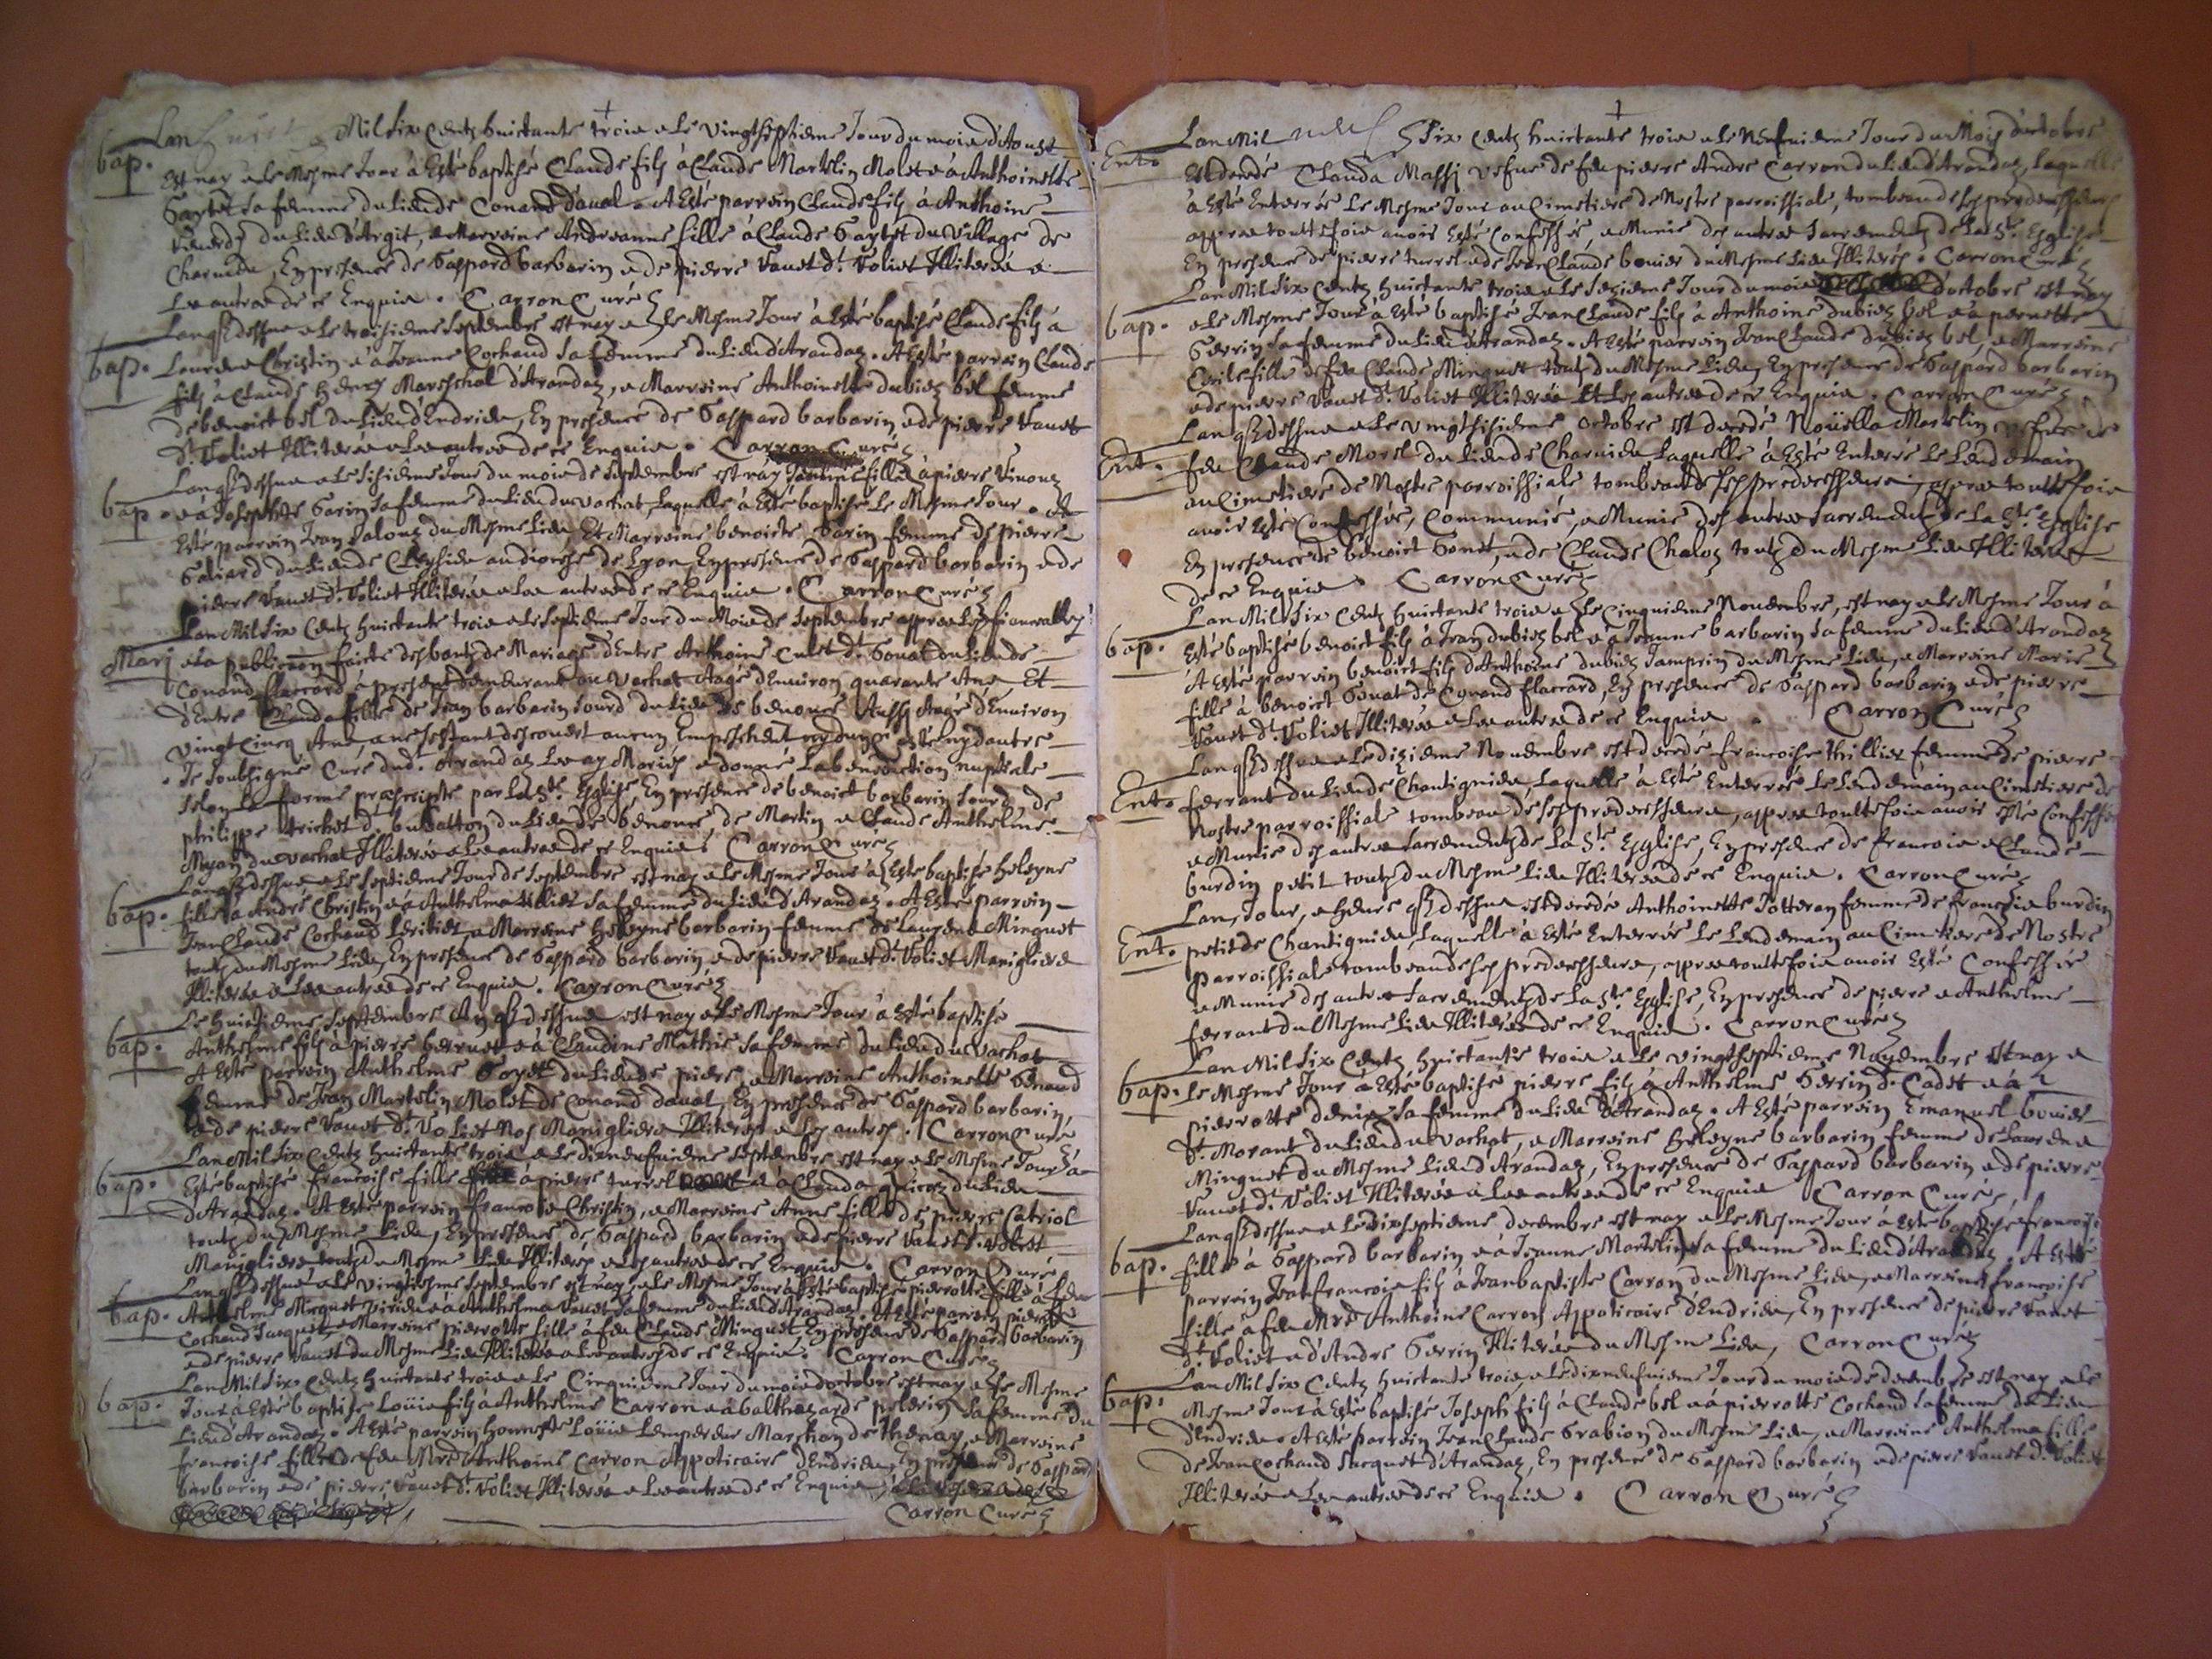 Lan Mil Six Centz huictante trois & le vingtseptieme Jour du mois d'Aoust
bap. Est nay & le Mesme Jour à Esté baptisé Claude filz à Claude Martelin Molet & à Anthoinette
sa femme du lieu de Conand d'aval. A Esté parrein Claude filz à Anthoine
du lieu d'Argit, & Marreine Andreanne fille à Claude du village de
Charvieu, En presence de Gaspard barbarin & de pierre Vauet dt. Voliet Illiterés &
les autres de ce Enquis. Carron Curé
Lan qs dessus & le troisieme Septembre est nay & le Mesme Jour à Esté baptisé Claude filz à
bap. Laurens Christin & à Jeanne Cochand sa femme du lieu d'Arandaz. A Esté parrein Claude
filz à Claude Mareschal d'Arandaz, & Marreine Anthoinette dubiez bel femme
de benoict bel du lieu d'Endrieu, En presence de Gaspard barbarin & de pierre Vauet
dt. Voliet Illiterés & les autres de ce Enquis. Carron Curé
Lan qs dessus & le sisieme Jour du mois de Septembre est nay fille à pierre
bap. & à Josephte Garin sa femme du lieu du Vachat, Laquelle à Esté baptisé le Mesme Jour. A
Esté parrein Jean du Mesme lieu Et Marreine benoiste Garin femme de pierre
du lieu de au diocese de Lyon, En presence de Gaspard barbarin & de
pierre Vauet dt. Voliet Illiterés & les autres de ce Enquis. Carron Curé
Lan Mil Six Centz huictante trois & le septieme Jour du Mois de Septembre appres les fiancailles
Marj & la publication faicte des bantz de Mariage d'Entre Anthoine dt. du lieu de
Conand à present demeurant au Vachat Aagé d'Environ quarante Ans, Et
d'Entre Clauda fille de Jean barbarin Sourd du lieu de benonce Aussj Aagé d'Environ
vingt Cincq Ans, & ne sestant descouvert aucun Empeschement ny d'un Costé ny d'autre
Je soubsigné Curé dud. Arandaz les ay Mariés & donné la benediction nuptiale
selon la forme prescripte par la Ste. Eglise, En presence de benoict barbarin Sourd, de
philippe Trichet dt. du lieu de benonce de Martin & Claude Anthelme
du Vachat Illiterés & les autres de ce Enquis. Carron Curé
Lan qs dessus & le septieme Jour de Septembre est nay & le Mesme Jour à Esté baptisé Heleyne
bap. fille à André Christin & à Anthelma sa femme du lieu d'Arandaz. A Esté parrein
Jean Claude Cochand & Marreine Heleyne barbarin femme de Laurens Minguet
toutz du Mesme lieu, En presence de Gaspard barbarin & de pierre Vauet dt. Voliet Marigliers
Illiterés & les autres de ce Enquis. Carron Curé
Le huictieme Septembre An qs dessus est nay & le Mesme Jour à Esté baptisé
bap. Anthelme filz à pierre & à Claudine Mathie sa femme du lieu du Vachat
A Esté parrein Anthelme du lieu de & Marreine Anthoinette
femme de Jean Martelin Molet de Conand d'aval, En presence de Gaspard barbarin,
& de pierre Vauet dt. Voliet Nos Marigliers Illiterés & les autres. Carron Curé
Lan Mil Six Centz huictante trois & le dixneufvieme Septembre est nay & le Mesme Jour à
bap. Esté baptisé Françoise fille à pierre turrel & à Clauda du lieu
d'Arandaz. A Esté parrein François Christin, & Marreine Anne fille de pierre
toutz du Mesme lieu, En presence de Gaspard barbarin & de pierre Vauet dt. Voliet
Marigliers toutz du Mesme lieu Illiterés & les autres de ce Enquis. Carron Curé
Lan qs dessus & le vingtiesme Septembre est nay & le Mesme Jour à Esté baptisé pierrotte fille à feu
bap. Anthelme Minguet & à Anthelma Vauet sa femme du lieu d'Arandaz. A Esté parrein pierre
Cochand Jacquet & Marreine pierrotte fille à feu Claude Minguet, En presence de Gaspard barbarin
& de pierre Vauet du Mesme lieu Illiterés & les autres de ce Enquis. Carron Curé
Lan Mil Six Centz huictante trois & le Cinquieme Jour du mois doctobre est nay & le Mesme
bap. Jour à Esté baptisé Loüis filz à Anthelme Carron & à balthezarde sa femme du
lieu d'Arandaz. A Esté parrein honneste Loüis Lempereur Marchand de thenay, & Marreine
Françoise fille de feu Mre Anthoine Carron Appoticaire d'Endrieu, En presence de Gaspard
barbarin & de pierre Vauet dt. Voliet Illiterés & les autres de ce Enquis
Carron Curé
Lan Mil Six Centz huictante trois & le Neufvieme Jour du Mois doctobre
Ent. Est decedé Clauda Massj vefve de feu pierre André Carron du lieu d'Arandaz, Laquelle
à Esté Enterrée le Mesme Jour au Cimetiere de Nostre parroissiale, tombeau de ses predecesseurs
appres touttefois avoir Esté Confessée, & Munie des autres Sacrements de la Ste. Esglise
En presence de pierre turrel & de Jean Claude bovier du Mesme lieu Illiterés. Carron Curé
Lan Mil Six Centz huictante trois & le sezieme Jour du mois doctobre est nay
bap. & le Mesme Jour à Esté baptisé Jean Claude filz à Anthoine dubiez bel & à pernette
Serrin sa femme du lieu d'Arandaz. A Esté parrein Jean Claude dubiez bel, & Marreine
fille de feu Claude Minguet toutz du Mesme lieu, En presence de Gaspard barbarin
& de pierre Vauet dt. Voliet Illiterés Et les autres de ce Enquis. Carron Curé
Lan qs dessus & le vingtsisieme octobre est decedé Noüella Martelin vefve de
Ent. feu Claude Morel du lieu de Charvieu Laquelle à Esté Enterré le lendemain
au Cimetiere de Nostre parroissiale tombeau de ses predecesseurs, appres touttefois
avoir Esté Confessée, Communié, & Munie des autres sacrements de la Ste. Esglise
En presence de benoict & de Claude Chaloz toutz du Mesme lieu Illiterés
de ce Enquis. Carron Curé
Lan Mil Six Centz huictante trois & le Cinquieme Novembre, est nay & le Mesme Jour à
bap. Esté baptisé benoict filz à Jean dubiez bel & à Jeanne barbarin sa femme du lieu d'Arandaz
A Esté parrein benoict filz d'Anthoine dubiez du Mesme lieu, & Marreine Marie
fille à benoict de Conand, En presence de Gaspard barbarin & de pierre
Vauet dt. Voliet Illiterés & les autres de ce Enquis. Carron Curé
Lan qs dessus & le dizieme Novembre est decedé Françoise thillier femme de pierre
Ent. ferrant du lieu de Chantignieu, Laquelle à Esté Enterrée le lendemain au Cimetiere de
Nostre parroissiale tombeau de ses predecesseurs, appres touttefois avoir Esté Confessée
& Munie des autres sacrements de la Ste. Esglise, En presence de François & Claude
burdin petit toutz du Mesme lieu Illiterés de ce Enquis. Carron Curé
Lan, Jour, & heure qs dessus est decedé Anthoinette femme de François burdin
Ent. petit de Chantignieu, Laquelle à Esté Enterrée le lendemain au Cimetiere de Nostre
parroissiale tombeau de ses predecesseurs, appres touttefois avoir Esté Confessée
& Munie des autres sacrements de la Ste. Esglise, En presence de pierre & Anthelme
ferrant du Mesme lieu Illiterés de ce Enquis. Carron Curé
Lan Mil Six Centz huictante trois & le vingtseptieme Novembre est nay &
bap. le Mesme Jour à Esté baptisé pierre filz à Anthelme Serrin dt. Cadet & à
pierrotte sa femme du lieu d'Arandaz. A Esté parrein Emanuel bovier
dt. Morant du lieu du Vachat, & Marreine Heleyne barbarin femme de Laurens
Minguet du Mesme lieu d'Arandaz, En presence de Gaspard barbarin & de pierre
Vauet dt. Voliet Illiterés & les autres de ce Enquis Carron Curé
Lan qs dessus & le dixseptieme decembre est nay & le Mesme Jour à Esté baptisé Françoise
bap. fille à Gaspard barbarin & à Jeanne Martelin sa femme du lieu d'Arandaz. A Esté
parrein Jean François filz à Jean baptiste Carron du Mesme lieu, & Marreine Françoise
fille à feu Mre Anthoine Carron Appoticaire d'Endrieu, En presence de pierre Vauet
dt. Voliet & d'André Serrin Illiterés du Mesme lieu, Carron Curé
Lan Mil Six Centz huictante trois, & le dixneufvieme Jour du mois de decembre est nay & le
bap. Mesme Jour à Esté baptisé Joseph filz à Claude bel & à pierrotte Cochand sa femme du lieu
d'Endrieu. A Esté parrein Jean Claude Grabion du Mesme lieu, & Marreine Anthelma fille
de Jean Cochand Jacquet d'Arandaz, En presence de Gaspard barbarin & de pierre Vauet dt. Voliet
Illiterés & les autres de ce Enquis. Carron Curé